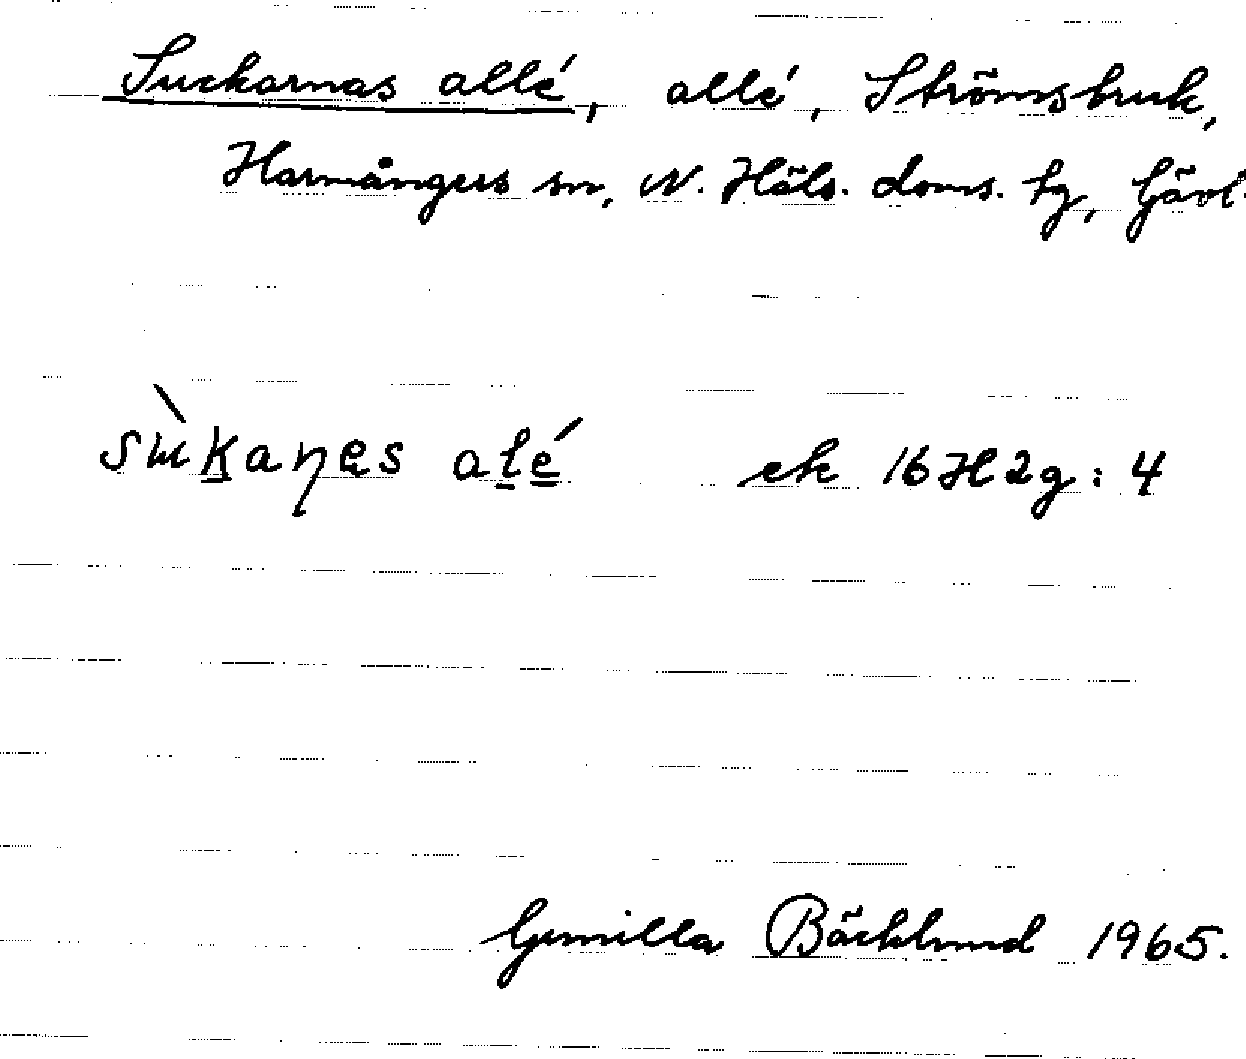 Suckarnas allé, allé, Strömsbruk,
Harmångers sn, N. Häls. doms. tg, Gävl.
ek 16H2g:4
Gunilla Bäcklund 1965.